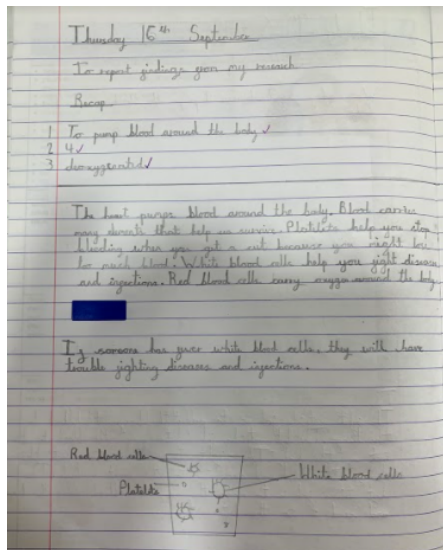 Thursday 16th September
To report findings from my research
Recap
1 To pump blood around the body ✓
2 4 ✓
3 deoxygenated ✓
The heart pumps blood around the body. Blood carries
many elements that help us survive. Platelets help you stop
bleeding when you get a cut because you might lose
to much blood. White blood cells help you fight disease
and infections. Red blood cells carry oxygen around the body
If someone has fewer white blood cells, they will have
trouble fighting diseases and infections.
Red blood cells
White blood cells
Platelets